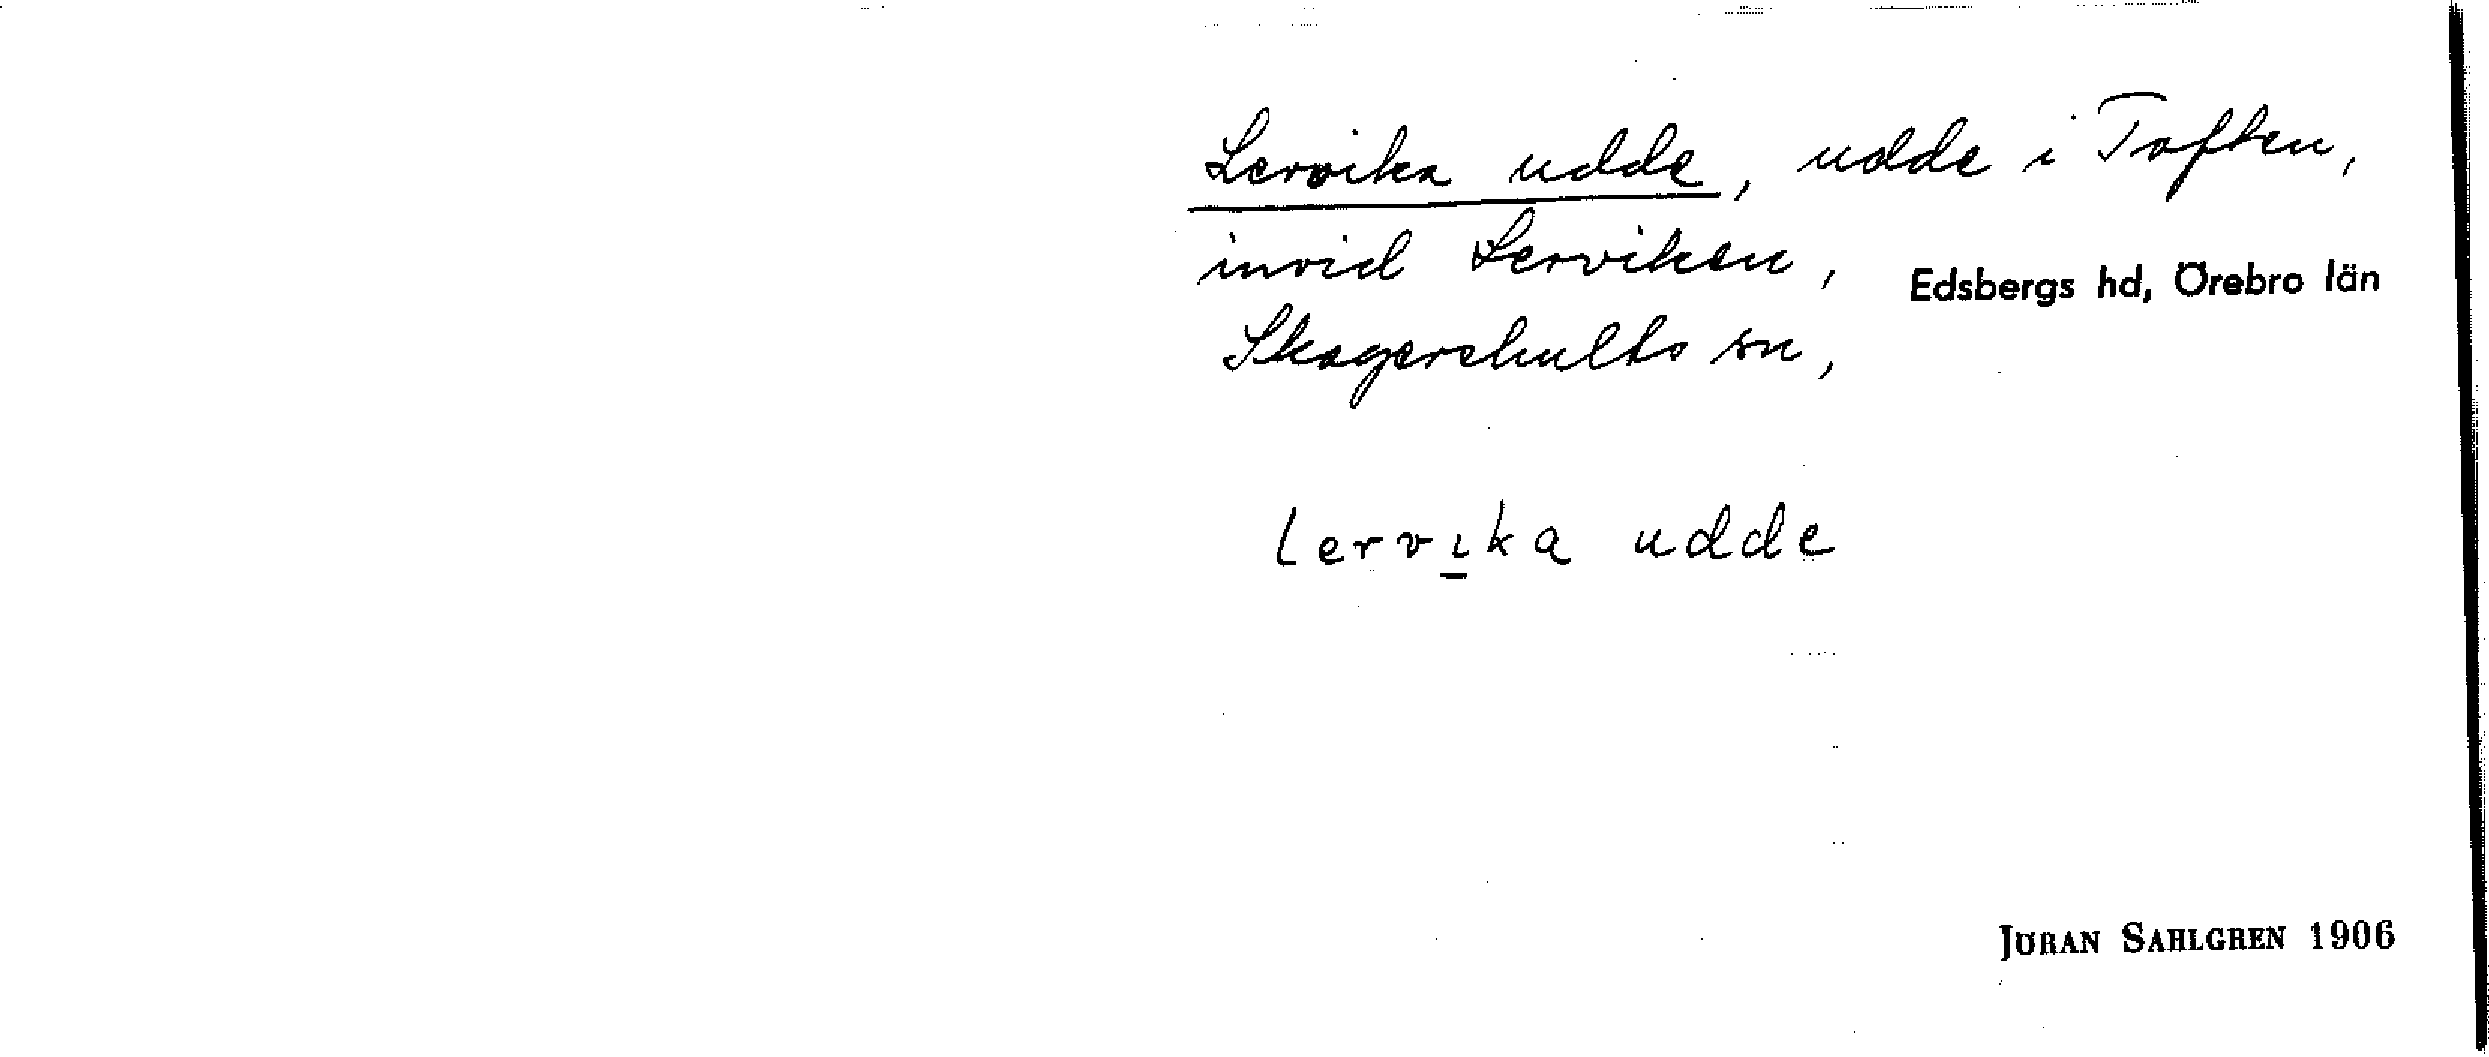 Lervika udde, udde i Toften,
invid Lerviken, Edsbergs hd, Örebro län
Skagershults sn,
Lervika udde
JÖRAN SAHLGREN 1906